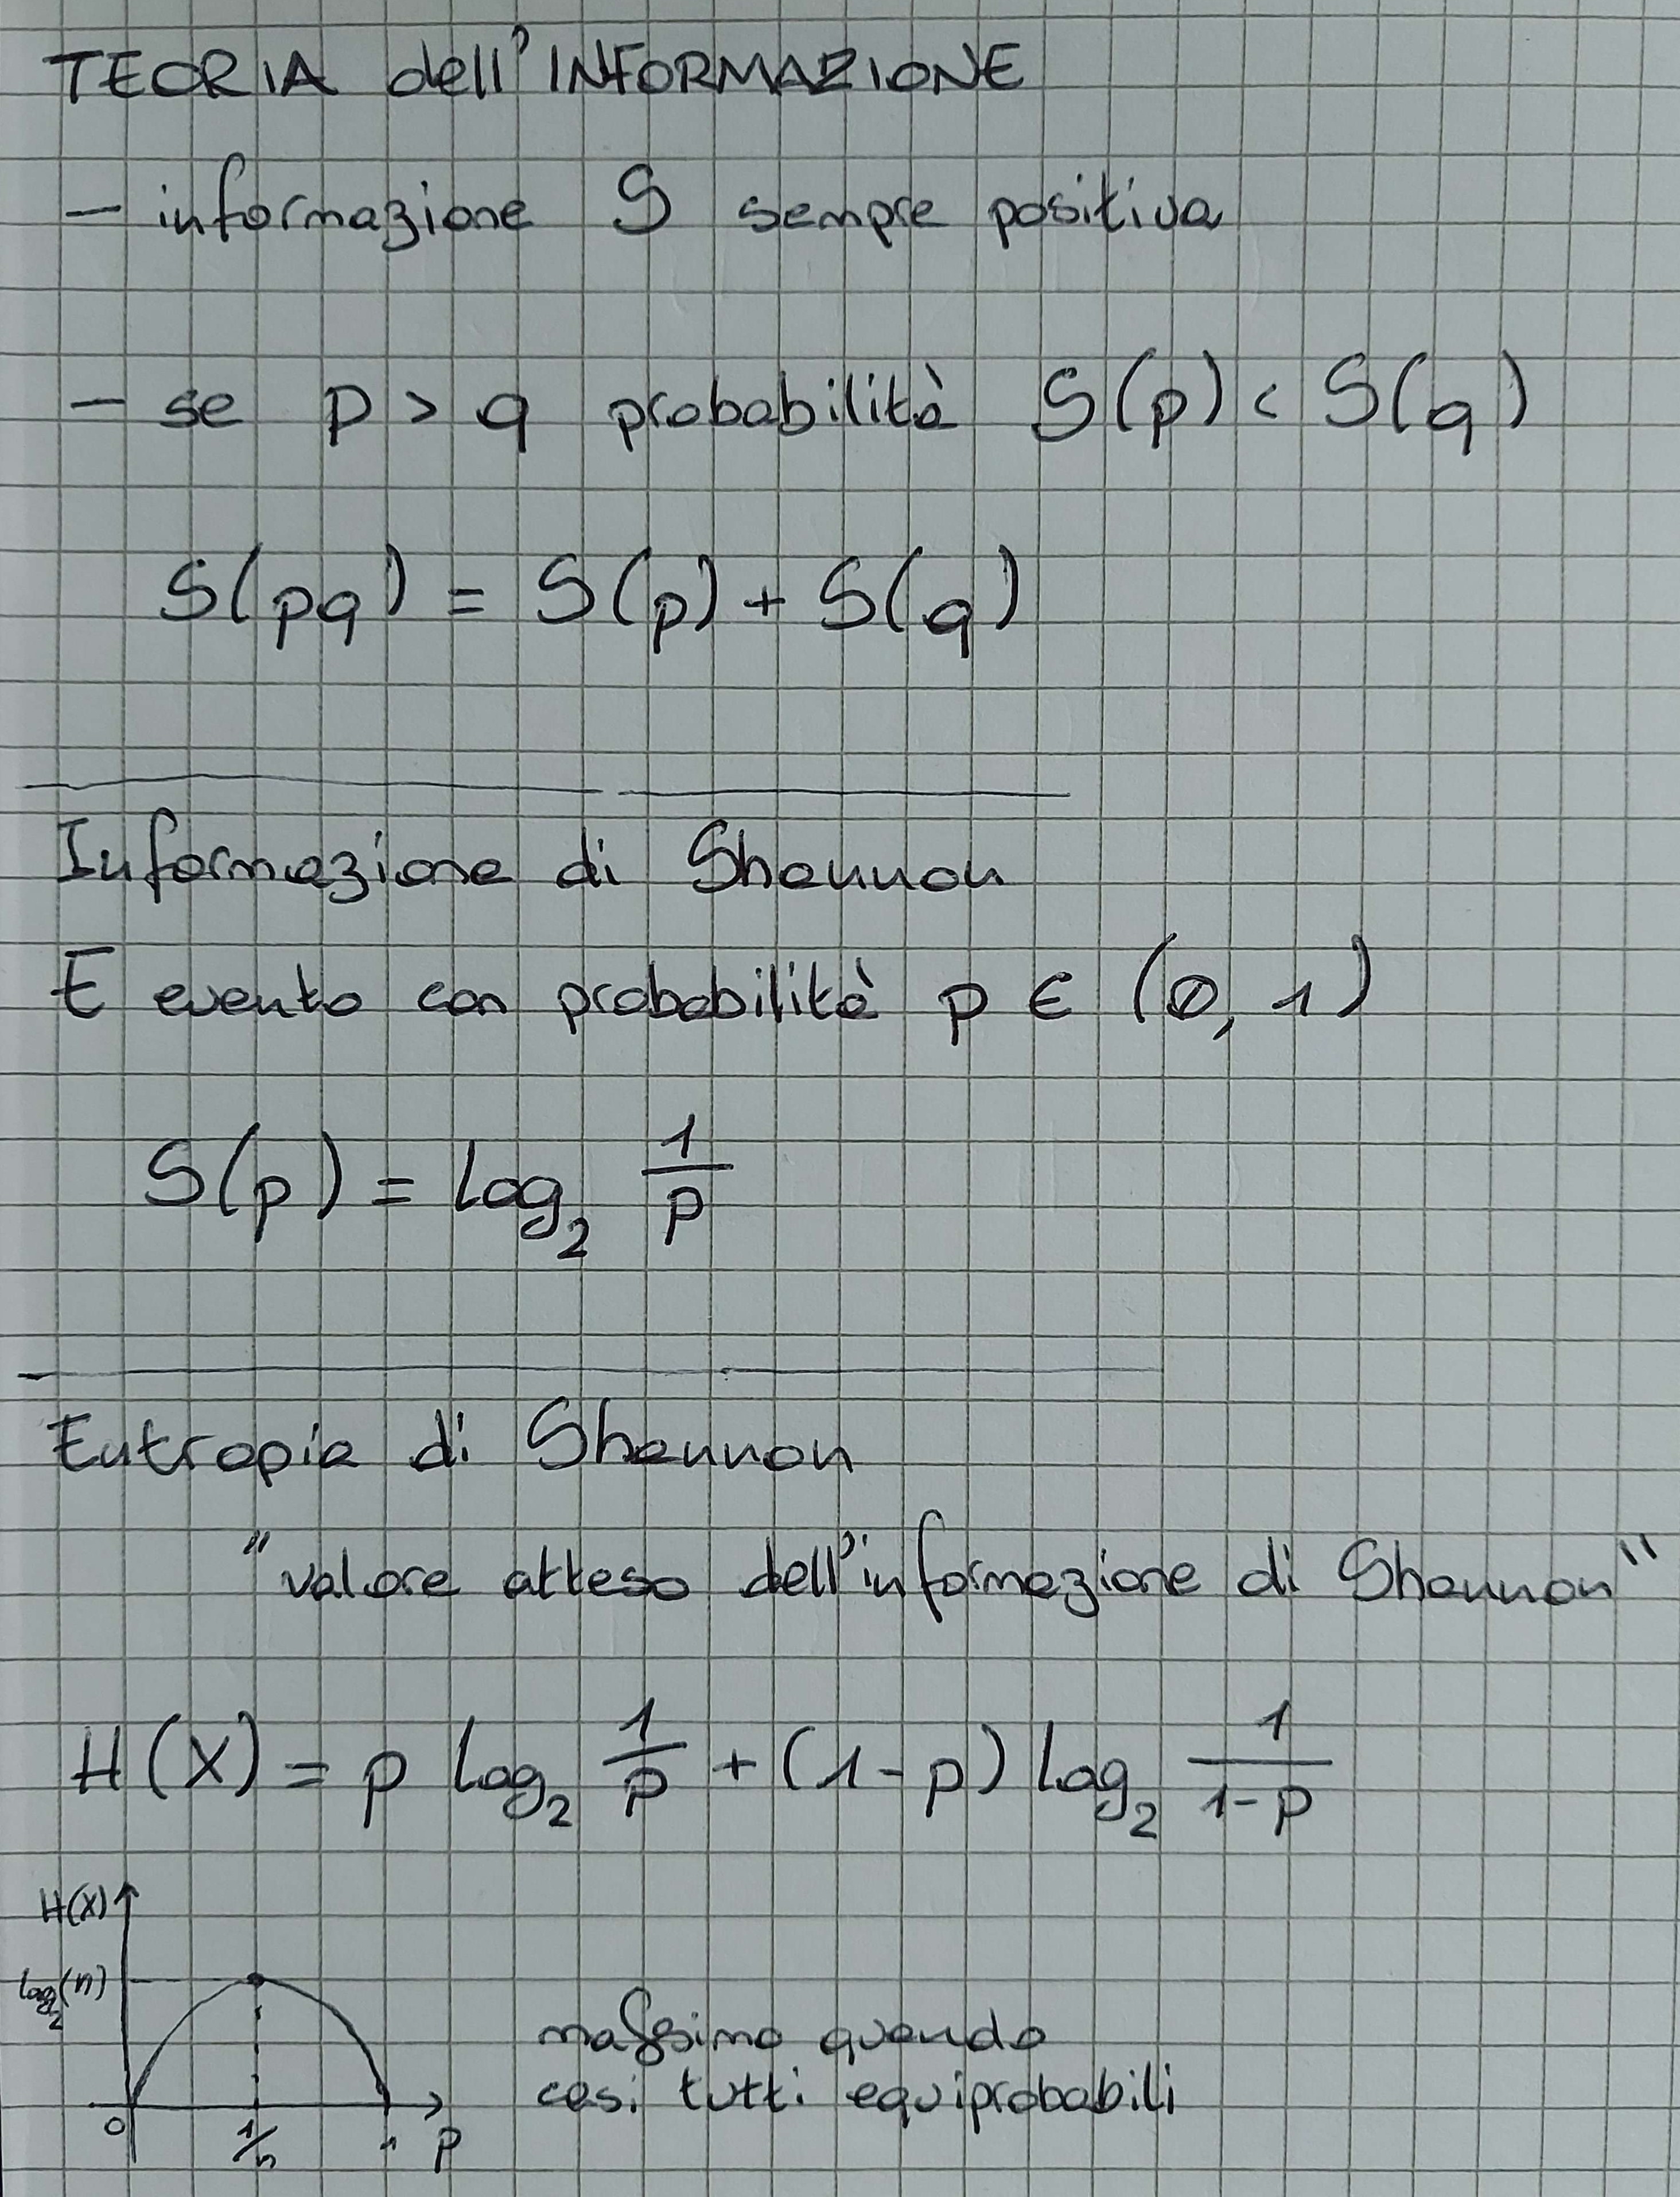 TEORIA dell'INFORMAZIONE
- informazione S sempre positiva
- se p > q probabilità S(p) < S(q)
S(pq) = S(p) + S(q)
Informazione di Shannon
E evento con probabilità p ∈ (0, 1)
S(p) = log₂ 1/p
Entropia di Shannon
"valore atteso dell'informazione di Shannon"
H(X) = p log₂ 1/p + (1-p) log₂ 1/(1-p)
H(X)
log₂(n)
0 1/n 1 p
massimo quando
casi tutti equiprobabili